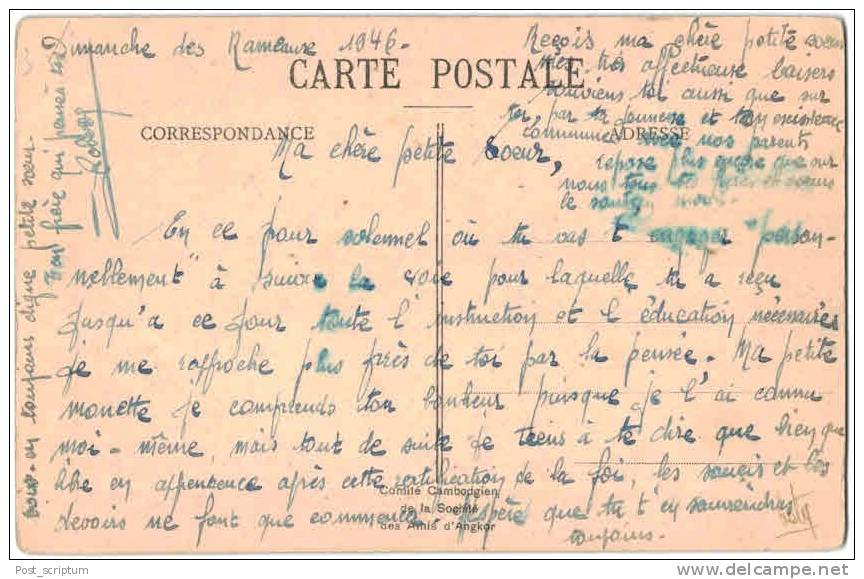 Dimanche des Rameaux 1946 -
CARTE POSTALE
CORRESPONDANCE
ADRESSE
Ma chère petite soeur,
En ce jour solennel où tu vas t'engager "person-
nellement" à suivre la voie pour laquelle tu a reçu
jusqu'a ce jour toute l'instruction et l'éducation nécessaires
je me rapproche plus près de toi par la pensée. Ma petite
monette je comprends ton bonheur puisque je l'ai connu
moi-même, mais tout de suite je tiens à te dire que bien que
libre en apparence après cette rectification de la foi, les soucis et les
devoirs ne font que commencer. J'espère que tu t'en souviendras
toujours.
Comité Cambodgien
de la Société
des Amis d'Angkor
Reçois ma chère petite soeur
mes très affectueux baisers
souviens toi aussi que sur
toi, par ta jeunesse et ton existence
commune avec nos parents
repose plus encore que sur
nous tous tes frères et soeurs
le
sois-en toujours digne petite soeur.
Ton frère qui pense à toi
Post_scriptum
www.delcampe.net